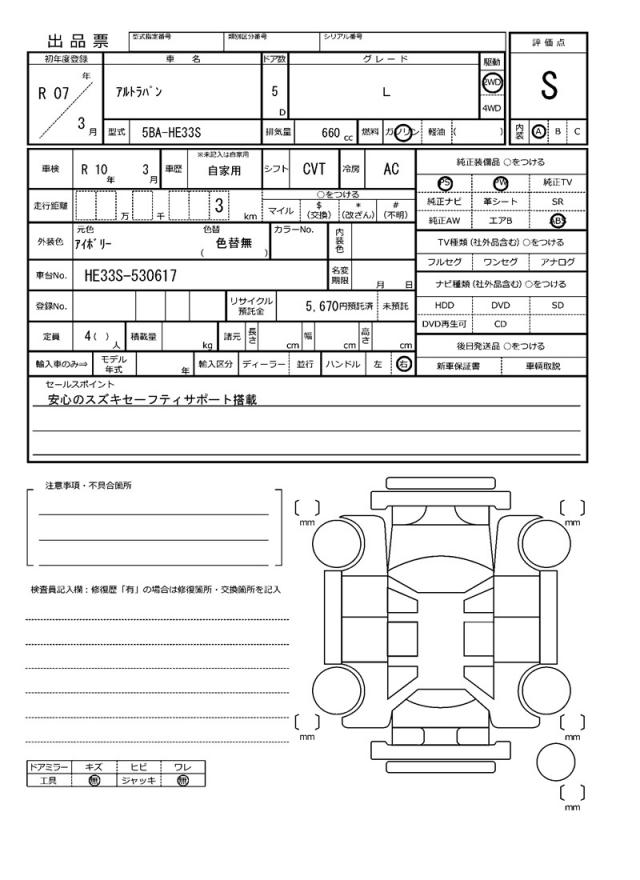 出品票 型式指定番号 類別区分番号 シリアル番号 評価点
初年度登録 車名 ドア数 グレード 駆動
R 07 年 3 月 アルトラパン 5 D L 2WD 4WD S
型式 5BA-HE33S 排気量 660 cc 燃料 ガソリン 軽油 ( ) 内装 A B C
車検 R 10 年 3 月 車歴 ※未記入は自家用 自家用 シフト CVT 冷房 AC 純正装備品 ○をつける
PS PW 純正TV
走行距離 万 千 3 km ○をつける 純正ナビ 革シート SR
マイル $ (交換) * (改ざん) # (不明) 純正AW エアB ABS
外装色 元色 アイボリー 色替 色替無 ( ) カラーNo. 内装色 TV種類 (社外品含む) ○をつける
フルセグ ワンセグ アナログ
車台No. HE33S-530617 名変期限 月 日 ナビ種類 (社外品含む) ○をつける
登録No. リサイクル預託金 5,670円預託済 未預託 HDD DVD SD
DVD再生可 CD
定員 4( ) 人 積載量 kg 諸元 長さ cm 幅 cm 高さ cm 後日発送品 ○をつける
輸入車のみ⇒ モデル年式 年 輸入区分 ディーラー 並行 ハンドル 左 右 新車保証書 車輌取説
セールスポイント
安心のスズキセーフティサポート搭載
注意事項・不具合箇所
mm mm
検査員記入欄：修復歴「有」の場合は修復箇所・交換箇所を記入
mm mm
ドアミラー キズ ヒビ ワレ
工具 無 ジャッキ 無
mm